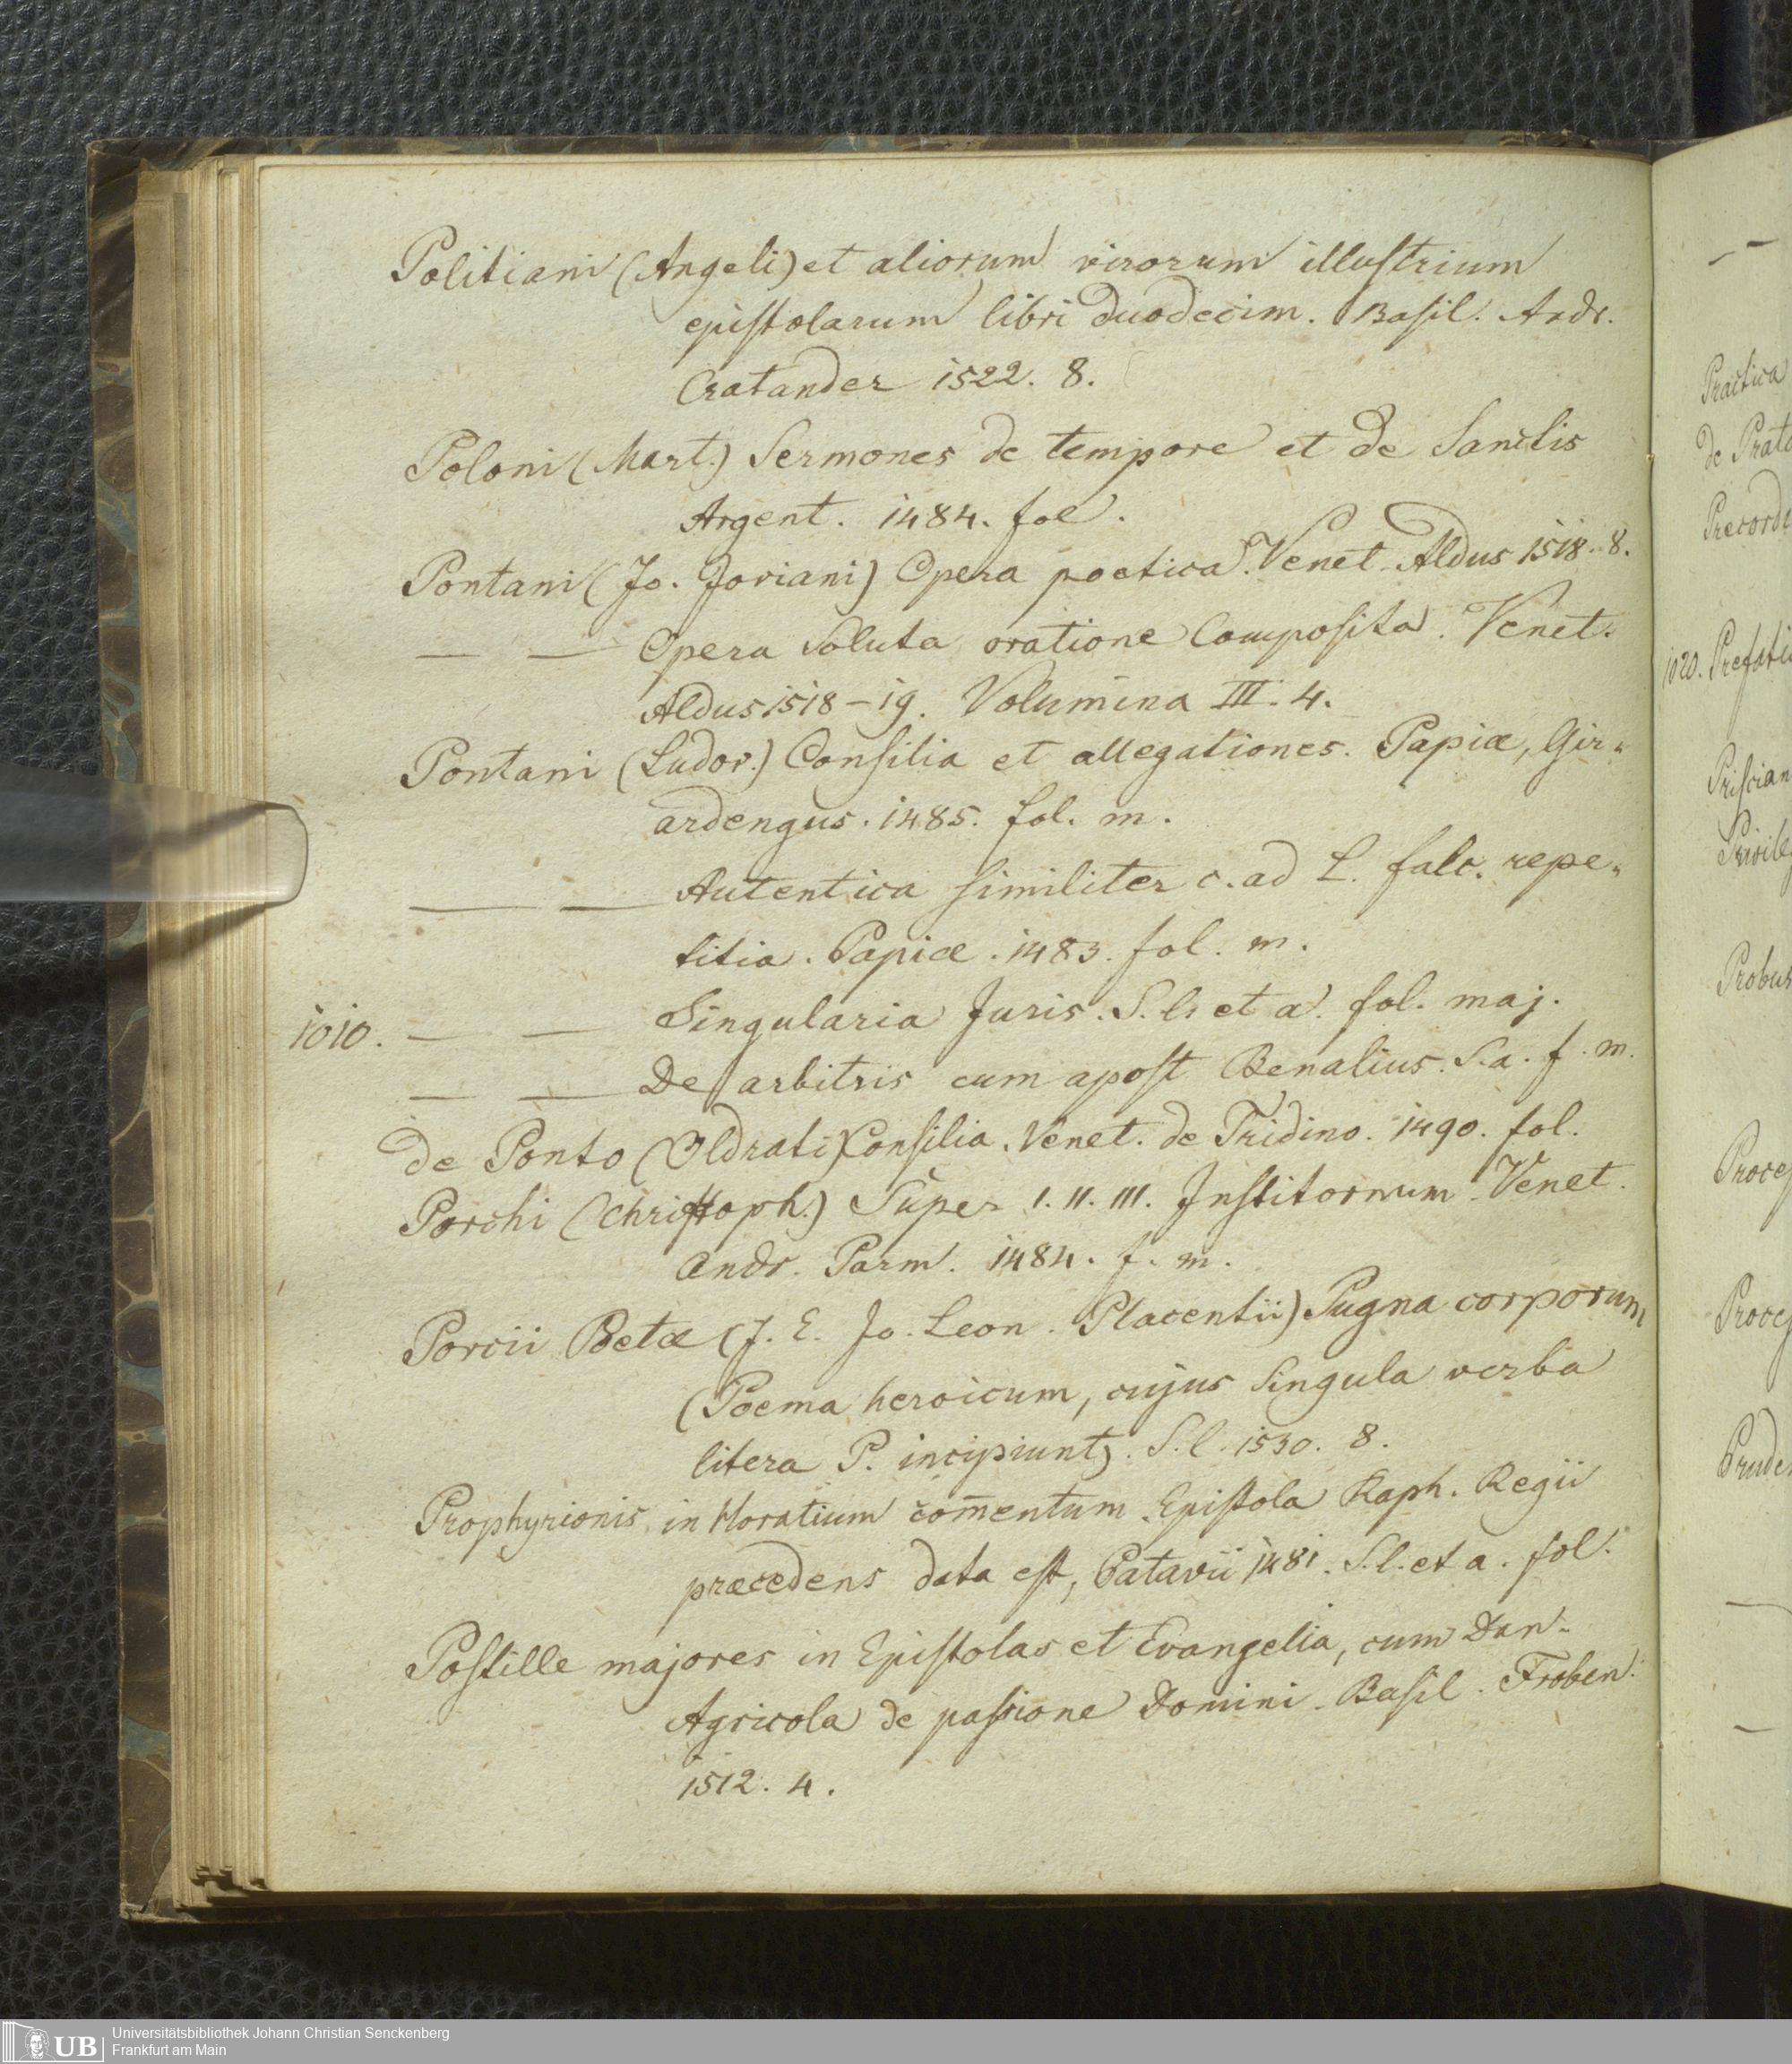 Politiani (Angeli) et aliorum virorum illustrium
epistolarum libri duodecim. Basil. Andr.
Cratander 1522. 8.
Poloni (Mart.) Sermones de tempore et de Sanctis
Argent. 1484. fol.
Pontani (Jo. Joviani) Opera poetica. Venet. Aldus 1518. 8.
— — Opera soluta oratione Composita. Venet.
Aldus 1518-19. Volumina III. 4.
Pontani (Ludov.) Consilia et allegationes. Papiæ, Gir-
ardengus. 1485. fol. m.
— — Autentica similiter c. ad L. falc. repe-
titia. Papiæ. 1483. fol. m.
1010. — — Singularia Juris. S. l. et a. fol. maj.
— — De arbitris cum apost Benalius. S. a. f. m.
de Ponto (Oldrati) Consilia. Venet. de Tridino. 1490. fol.
Porchi (Christoph.) Super I. II. III. Institornum. Venet.
Andr. Parm. 1484. f. m.
Porcii Poetæ (J. E. Jo. Leon. Placentii) Pugna corporum
(Poema heroicum, cujus singula verba
litera P. incipiunt). S. l. 1530. 8.
Prophyrionis in Horatium com̄entum. Epistola Raph. Regii
præcedens data est, Patavii 1481. S. l. et a. fol.
Postille majores in Epistolas et Evangelia, cum Dan.
Agricola de passione Domini. Basil. Froben.
1512. 4.
Practica
de Prato
Precordi
1020. Prefatio
Priscian
Privileg
Probus
Proces
Proces
Pruden
UB
Universitätsbibliothek Johann Christian Senckenberg
Frankfurt am Main